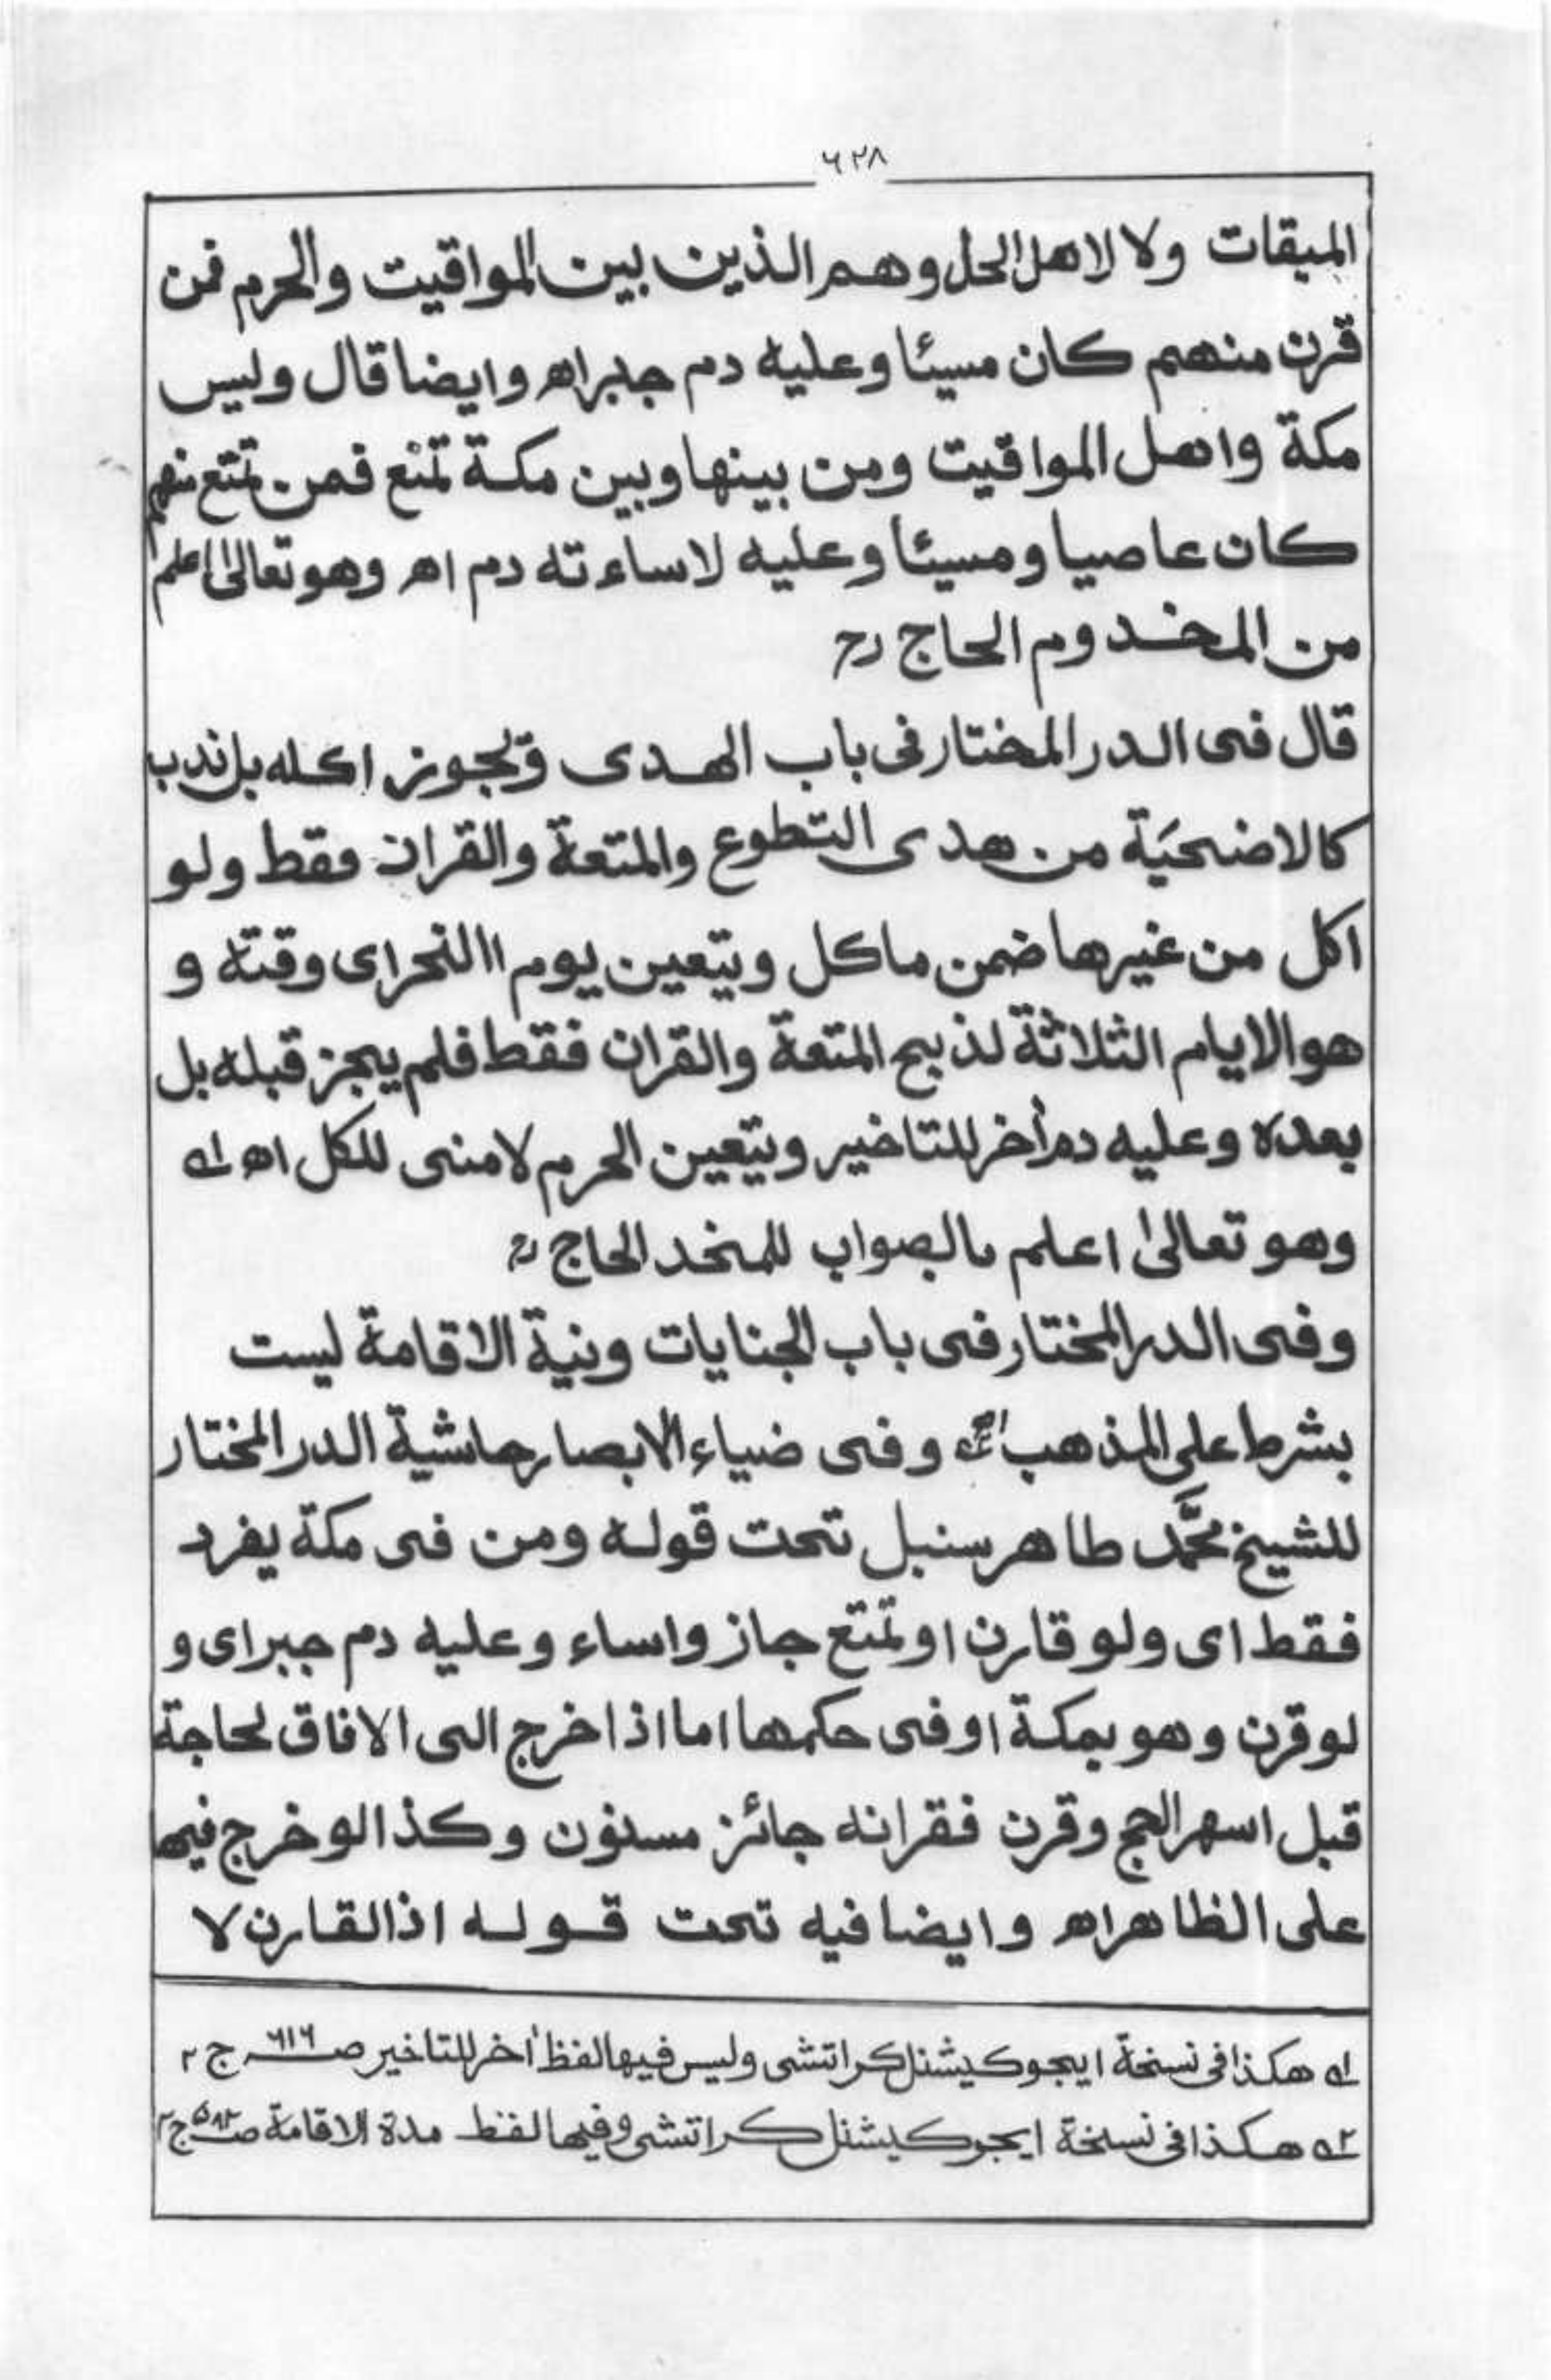 ۶۲۸
الميقات ولا لاهل الحل وهم الذين بين المواقيت والحرم فمن
قرن منهم كان مسيئا وعليه دم جبراه وايضا قال وليس
مكة واهل المواقيت ومن بينها وبين مكة تمتع فمن تمتع منهم
كان عاصيا ومسيئا وعليه لاساءته دم اه وهو تعالى اعلم
من المخدوم الحاج رح
قال فى الدر المختار فى باب الهدى ويجوز اكله بل ندب
كالاضحية من هدى التطوع والمتعة والقران فقط ولو
اكل من غيرها ضمن ماكل ويتعين يوم االنحر اى وقته و
هو الايام الثلاثة لذبح المتعة والقران فقط فلم يجز قبله بل
بعده وعليه دم أخر للتاخير ويتعين الحرم لا منى للكل اه ١ه
وهو تعالىٰ اعلم بالصواب للمخد الحاج رح
وفى الدر المختار فى باب الجنايات ونية الاقامة ليست
بشرط على المذهب اه وفى ضياء الابصار حاشية الدر المختار
للشيخ محمَّد طاهر سنبل تحت قوله ومن فى مكة يفرد
فقط اى ولو قارن او تمتع جاز واساء وعليه دم جبر اى و
لو قرن وهو بمكة او فى حكمها اما اذا خرج الى الافاق لحاجة
قبل اسهر الحج وقرن فقرانه جائز مسنون وكذا لو خرج فيها
على الظاهر اه وايضا فيه تحت قوله اذ القارن لا
١ه هكذا فى نسخة ايجوكيشنل كراتشى وليس فيها لفظ أخر للتاخير صـ ۶۱۶ ج ۲
٢ه هكذا فى نسخة ايجوكيشنل كراتشى وفيها لفظ مدة الاقامة صـ ۵۸۲ ج ۲